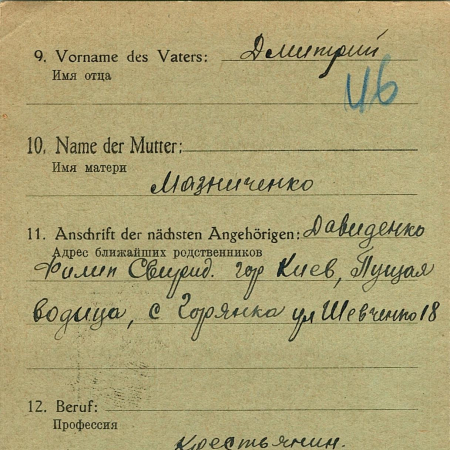 9. Vorname des Vaters: Дмитрий
Имя отца
46
10. Name der Mutter:
Имя матери
Мазниченко
11. Anschrift der nächsten Angehörigen: Давиденко
Адрес ближайших родственников
Филип Свирид. гор Киев, Пущая
водица, с Горянка ул Шевченко 18
12. Beruf:
Профессия
Крестьянин.